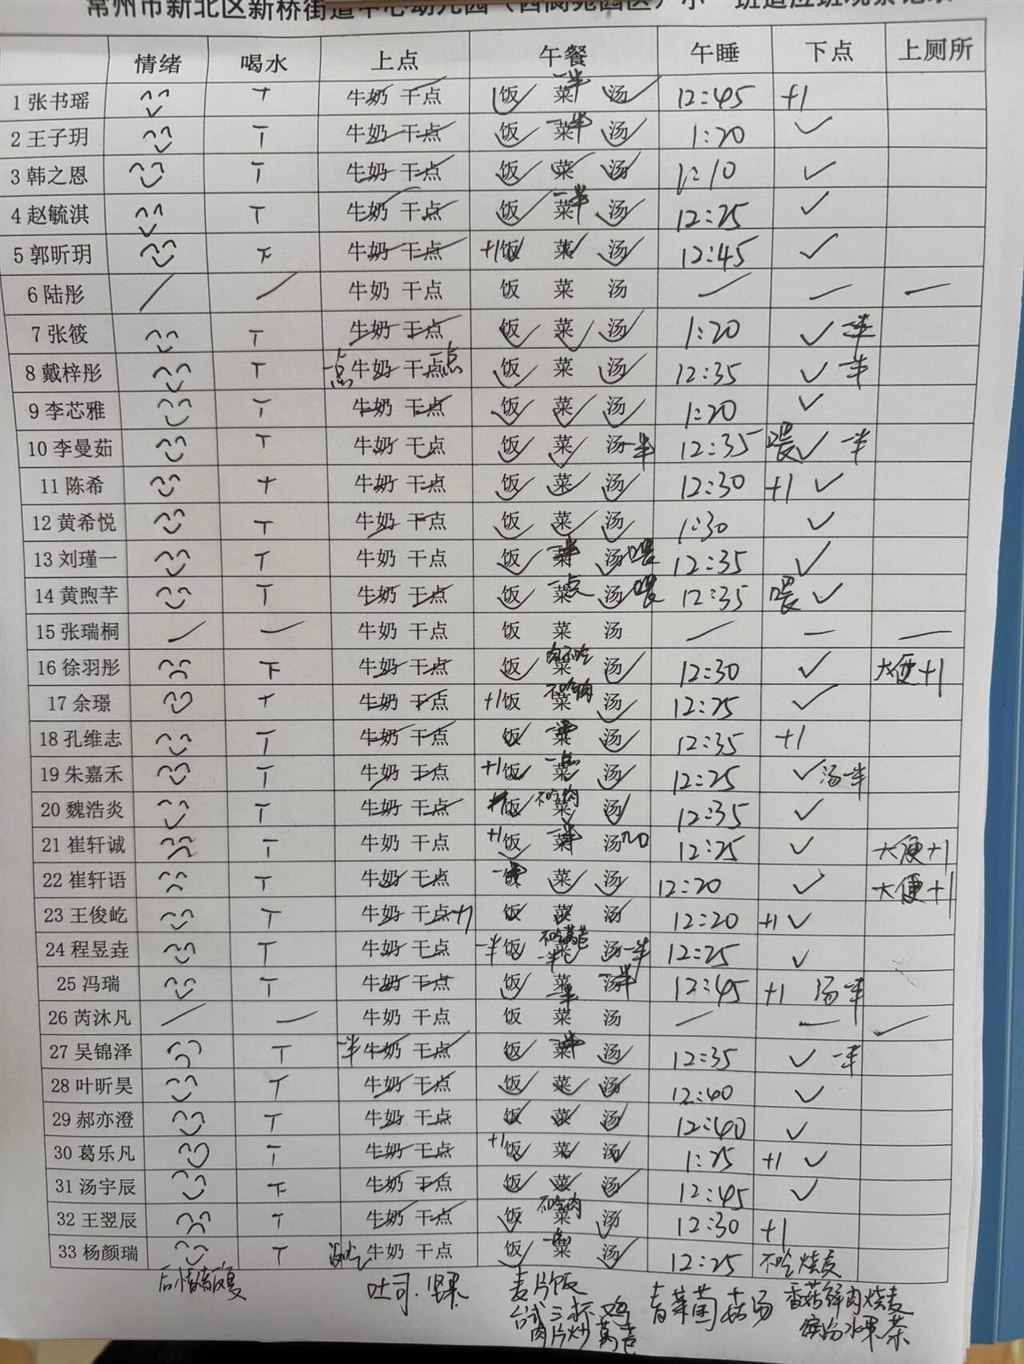 常州市新北区新桥街道中心幼儿园
情绪 喝水 上点 午餐 午睡 下点 上厕所
1 张书瑶 T 牛奶 干点 饭 菜 一半 汤 12:45 +1
2 王子玥 T 牛奶 干点 饭 菜 一半 汤 1:20 ✓
3 韩之恩 T 牛奶 干点 饭 菜 汤 1:10 ✓
4 赵毓淇 T 牛奶 干点 饭 菜 一半 汤 12:25 ✓
5 郭昕玥 下 牛奶 干点 +1 饭 菜 汤 12:45 ✓
6 陆彤 / / 牛奶 干点 饭 菜 汤 — — —
7 张筱 T 牛奶 干点 饭 菜 汤 1:20 ✓ 一半
8 戴梓彤 T 一点 牛奶 干点 一点 饭 菜 汤 12:35 ✓ 一半
9 李芯雅 T 牛奶 干点 饭 菜 汤 1:20 ✓
10 李曼茹 T 牛奶 干点 饭 菜 汤 一半 12:35 喂 ✓ 一半
11 陈希 T 牛奶 干点 饭 菜 汤 12:30 +1 ✓
12 黄希悦 T 牛奶 干点 饭 菜 汤 1:30 ✓
13 刘瑾一 T 牛奶 干点 饭 菜 一半 汤 喂 12:35 ✓
14 黄煦芊 T 牛奶 干点 饭 菜 一点 汤 喂 12:35 喂 ✓
15 张瑞桐 / — 牛奶 干点 饭 菜 汤 — — —
16 徐羽彤 下 牛奶 干点 饭 菜 肉不吃 汤 12:30 ✓ 大便+1
17 余璟 T 牛奶 干点 +1 饭 菜 不吃肉 汤 12:25 ✓
18 孔维志 T 牛奶 干点 饭 菜 一半 汤 12:35 +1
19 朱嘉禾 T 牛奶 干点 +1 饭 菜 一点 汤 12:25 ✓ 汤一半
20 魏浩炎 T 牛奶 干点 饭 菜 不吃肉 汤 12:35 ✓
21 崔轩诚 T 牛奶 干点 +1 饭 菜 一半 汤 no 12:25 ✓ 大便+1
22 崔轩语 T 牛奶 干点 一半 饭 菜 汤 12:20 ✓ 大便+1
23 王俊屹 T 牛奶 干点 +1 饭 菜 汤 12:20 +1 ✓
24 程昱垚 T 牛奶 干点 一半 饭 菜 不吃莴苣 一半 汤 一半 12:25 ✓
25 冯瑞 T 牛奶 干点 饭 菜 一半 汤 一半 12:45 +1 汤一半
26 芮沐凡 / — 牛奶 干点 饭 菜 汤 — — —
27 吴锦泽 T 一半 牛奶 干点 饭 菜 一半 汤 12:35 ✓ 一半
28 叶昕昊 T 牛奶 干点 饭 菜 汤 12:40 ✓
29 郝亦澄 T 牛奶 干点 饭 菜 汤 12:40 ✓
30 葛乐凡 T 牛奶 干点 +1 饭 菜 汤 1:25 +1 ✓
31 汤宇辰 下 牛奶 干点 饭 菜 汤 12:45 ✓
32 王翌辰 T 牛奶 干点 饭 菜 不吃肉 汤 12:30 +1
33 杨颜瑞 T 没吃 牛奶 干点 饭 菜 汤 12:25 不吃烧麦
吐司、坚果
麦片饭
台式三杯鸡
肉片炒莴苣
青菜菌菇汤
香菇鲜肉烧麦
水果茶